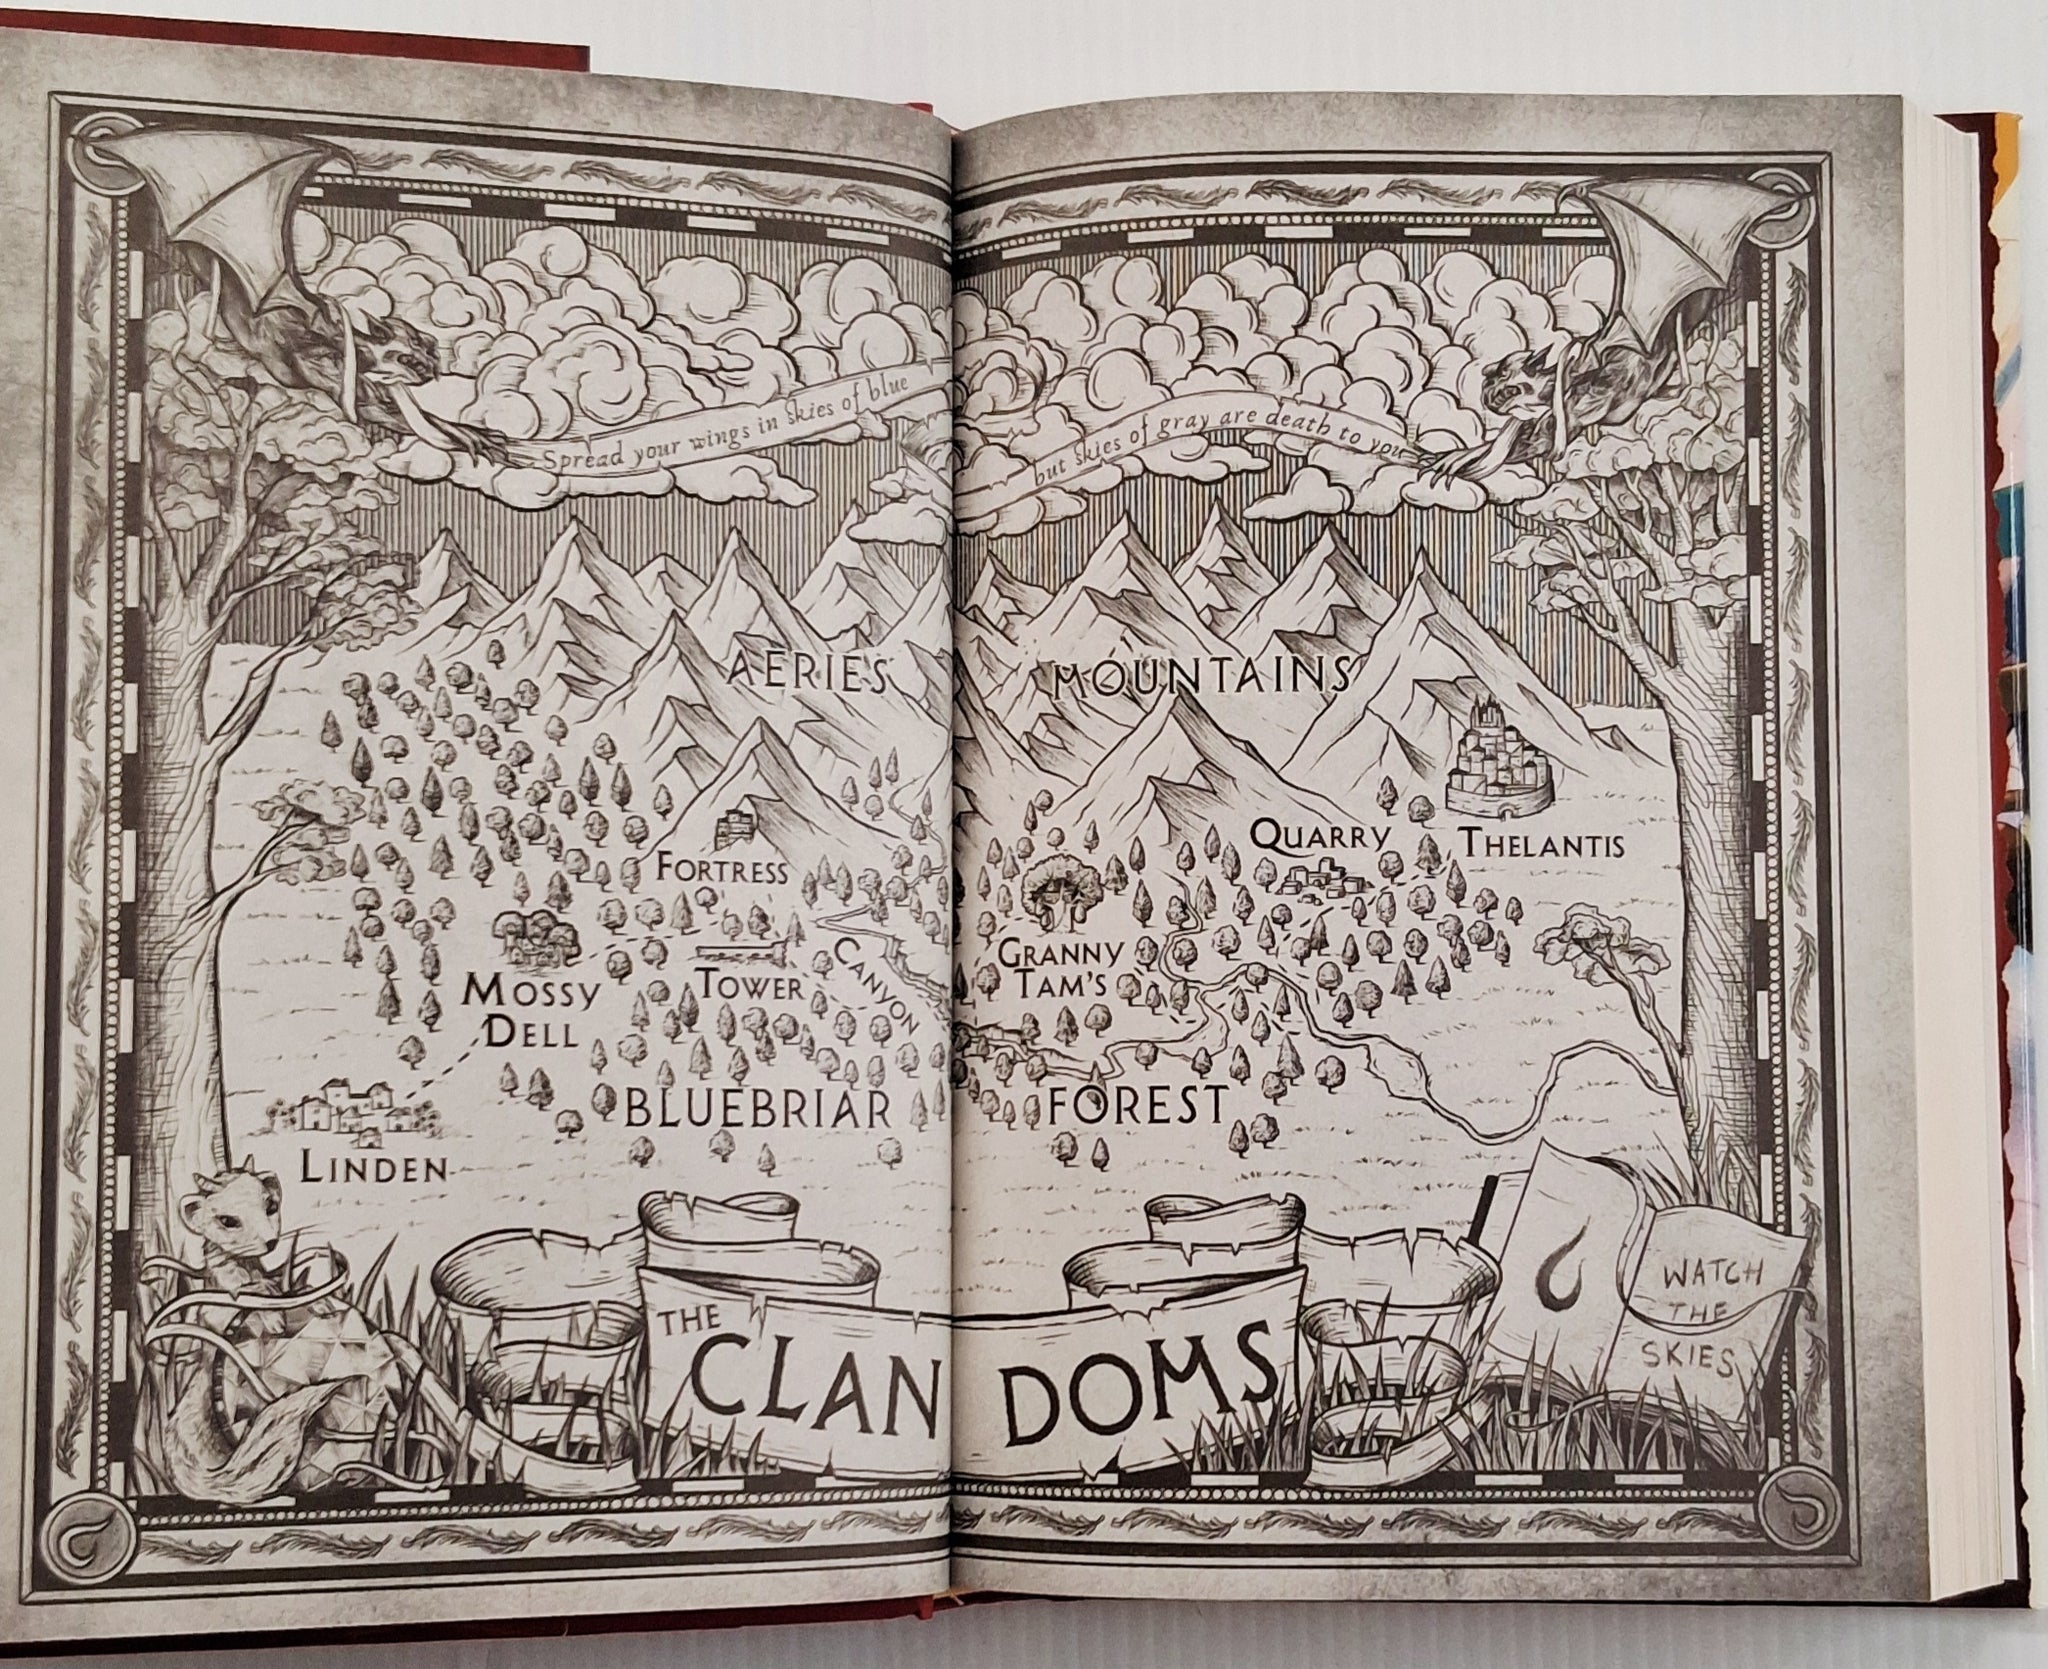 Spread your wings in skies of blue
but skies of gray are death to you
AERIES MOUNTAINS
QUARRY
THELANTIS
FORTRESS
GRANNY
TAM'S
CANYON
MOSSY
DELL
TOWER
BLUEBRIAR FOREST
LINDEN
THE
CLANDOMS
WATCH
THE
SKIES